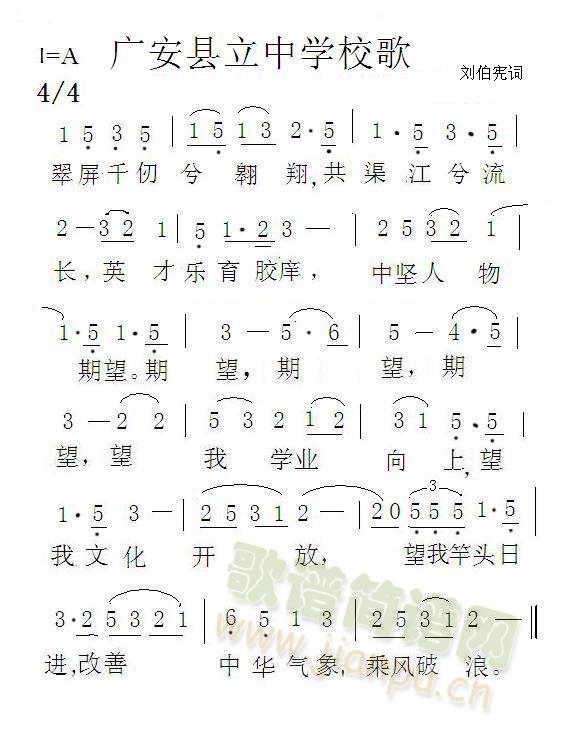 1=A 广安县立中学校歌
4/4 刘伯宪词
1 5 3 5 | 1 5 1 3 2·5 | 1·5 3·5
翠屏千仞兮翱翔,共渠江兮流
2－3 2 1 | 5 1·2 3－ | 2 5 3 2 1
长，英才乐育胶庠，中坚人物
1·5 1·5 3－5·6 5－4·5
期望。期望，期望，期
3－2 2 5 3 2 1 2 3 1 5·5
望，望我学业向上,望
1·5 3－ | 2 5 3 1 2－ | 2 0 5 5 5 1·5
3
我文化开放，望我竿头日
3·2 5 3 2 1 | 6 5 1 3 | 2 5 3 1 2－ ‖
进,改善中华气象,乘风破浪。
歌谱简谱网
www.jianpu.cn